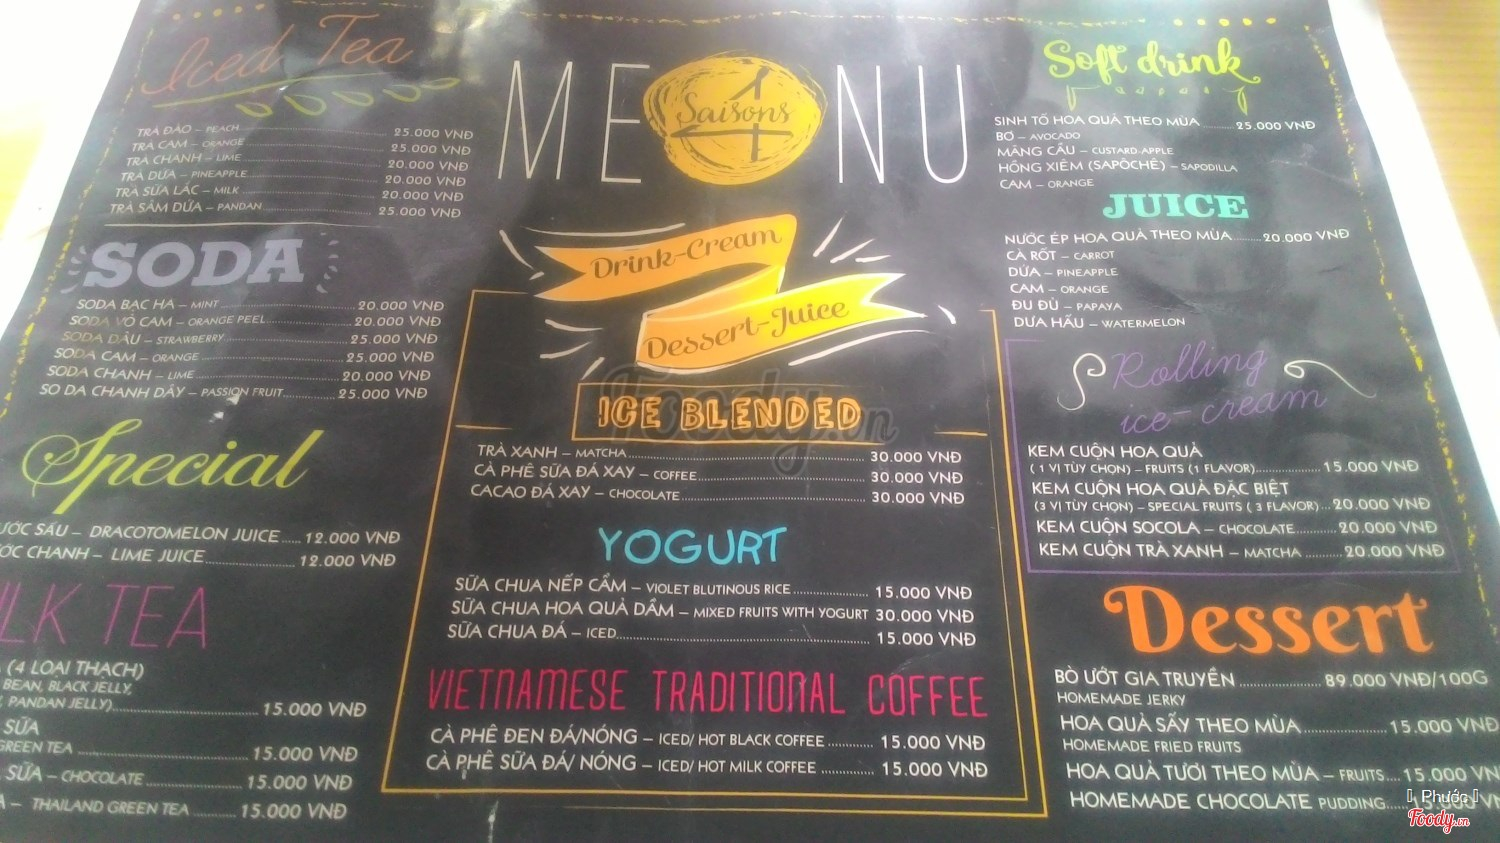 Iced Tea
TRÀ ĐÀO – PEACH 25.000 VNĐ
TRÀ CAM – ORANGE 25.000 VNĐ
TRÀ CHANH – LIME 20.000 VNĐ
TRÀ DỨA – PINEAPPLE 20.000 VNĐ
TRÀ SỮA LẮC – MILK 20.000 VNĐ
TRÀ SÂM DỨA – PANDAN 25.000 VNĐ
SODA
SODA BẠC HÀ – MINT 20.000 VNĐ
SODA VỎ CAM – ORANGE PEEL 20.000 VNĐ
SODA DÂU – STRAWBERRY 25.000 VNĐ
SODA CAM – ORANGE 25.000 VNĐ
SODA CHANH – LIME 20.000 VNĐ
SO DA CHANH DÂY – PASSION FRUIT 25.000 VNĐ
Special
ƯỚC SẤU – DRACOTOMELON JUICE 12.000 VNĐ
ƯỚC CHANH – LIME JUICE 12.000 VNĐ
LK TEA
(4 LOẠI THẠCH)
BEAN, BLACK JELLY,
PANDAN JELLY) 15.000 VNĐ
SỮA
GREEN TEA 15.000 VNĐ
SỮA – CHOCOLATE 15.000 VNĐ
– THAILAND GREEN TEA 15.000 VNĐ
MENU
4 Saisons
Drink-Cream
Dessert-Juice
ICE BLENDED
TRÀ XANH – MATCHA 30.000 VNĐ
CÀ PHÊ SỮA ĐÁ XAY – COFFEE 30.000 VNĐ
CACAO ĐÁ XAY – CHOCOLATE 30.000 VNĐ
YOGURT
SỮA CHUA NẾP CẨM – VIOLET BLUTINOUS RICE 15.000 VNĐ
SỮA CHUA HOA QUẢ DẦM – MIXED FRUITS WITH YOGURT 30.000 VNĐ
SỮA CHUA ĐÁ – ICED 15.000 VNĐ
VIETNAMESE TRADITIONAL COFFEE
CÀ PHÊ ĐEN ĐÁ/NÓNG – ICED/ HOT BLACK COFFEE 15.000 VNĐ
CÀ PHÊ SỮA ĐÁ/ NÓNG – ICED/ HOT MILK COFFEE 15.000 VNĐ
Soft drink
SINH TỐ HOA QUẢ THEO MÙA 25.000 VNĐ
BƠ – AVOCADO
MÃNG CẦU – CUSTARD-APPLE
HỒNG XIÊM (SAPÔCHÊ) – SAPODILLA
CAM – ORANGE
JUICE
NƯỚC ÉP HOA QUẢ THEO MÙA 20.000 VNĐ
CÀ RỐT – CARROT
DỨA – PINEAPPLE
CAM – ORANGE
ĐU ĐỦ – PAPAYA
DƯA HẤU – WATERMELON
Rolling
ice-cream
KEM CUỘN HOA QUẢ
( 1 VỊ TÙY CHỌN) – FRUITS (1 FLAVOR) 15.000 VNĐ
KEM CUỘN HOA QUẢ ĐẶC BIỆT
(3 VỊ TÙY CHỌN) – SPECIAL FRUITS ( 3 FLAVOR) 20.000 VNĐ
KEM CUỘN SOCOLA – CHOCOLATE 20.000 VNĐ
KEM CUỘN TRÀ XANH – MATCHA 20.000 VNĐ
Dessert
BÒ ƯỚT GIA TRUYỀN 89.000 VNĐ/100G
HOMEMADE JERKY
HOA QUẢ SẤY THEO MÙA 15.000 VNĐ
HOMEMADE FRIED FRUITS
HOA QUẢ TƯƠI THEO MÙA – FRUITS 15.000 VN
HOMEMADE CHOCOLATE PUDDING 15.000 VN
Foody.vn
Phước
Foody.vn